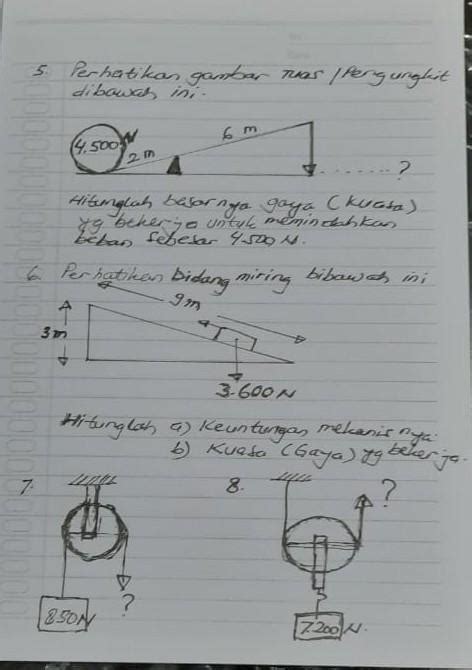 5. Perhatikan gambar Tuas / Pengungkit
dibawah ini.
4.500 N
2 m
6 m
?
Hitunglah besarnya gaya (kuasa)
yg bekerja untuk memindahkan
beban sebesar 4.500 N.
6. Perhatikan Bidang miring bibawah ini
9 m
3 m
3.600 N
Hitunglah a) Keuntungan mekanis nya.
b) Kuasa (Gaya) yg bekerja.
7.
8.
?
?
850 N
7.200 N.